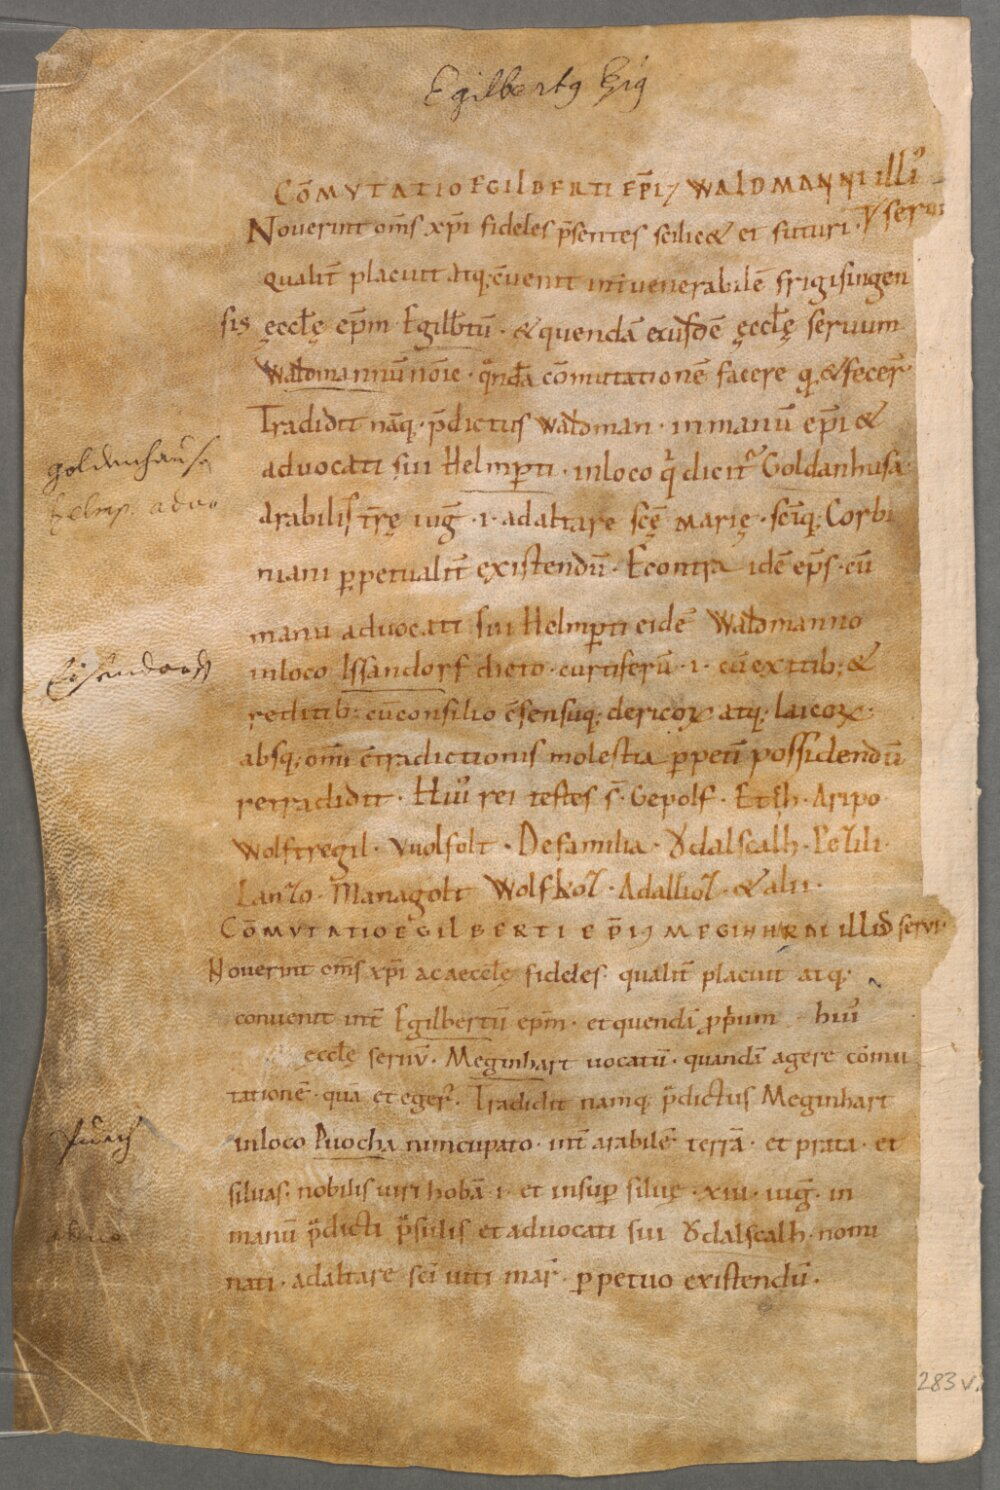 Egilbertꝰ Epꝰ
COM̅VTATIO EGILBERTI EP̅I ⁊ WALDMANNI illiꝰ
servi
Noverint om̅s xp̅i fideles p̅sentes scilic& et futuri.
qualit̅ placuit atq; c̅uenit int̅ uenerabile̅ frigisingen
sis ęccl̅ę ep̅m Egilb̅tu̅ · & quenda̅ eiusde̅ ęccl̅ę seruum
Waldmannu̅ no̅ie · qua̅nda̅ co̅mutatione̅ facere q; & fecer̅
Tradidit na̅q; p̅dictus Waldman · in manu̅ ep̅i &
advocati sui Helmp̅ti · in loco q̅ dicit᷑ Goldanhusa̅
arabilis tr̅ę iug̅ · i · ad altare sc̅ę Marię · sc̅iq; Corbi
niani p̲petualit̅ existendu̅ · Econtra ide̅ ep̅s · cu̅
manu advocati sui Helmp̅ti eide̅ Waldmanno
in loco Issandorf dicto · curtiferu̅ · i · cu̅ exitib; &
reditib; cu̅ consilio c̅sensuq; clericoꝝ atq; laicoꝝ ·
absq; om̅i c̅tradictionis molestia p̲petu̅ possidendu̅
retradidit · Huiꝰ rei testes s̅ · Gepolf · Etih · Aripo
Wolftregil · Vuolfolt · De familia · Ǒdalscalh · Pezili
Lanzo · Managolt Wolfkoz · Adalhoz · & alii ·
CO̅MVTATIO EGILBERTI EP̅I ⁊ MEGINHARDI illiꝰ servi ·
Noverint om̅s xp̅i ac aeccl̅ę fideles · qualit̅ placuit atq;
convenit int̅ Egilbertu̅ ep̅m · et quenda̅ p̲p̅ium huiꝰ
eccl̅e seruu̅ · Meginhart uocatu̅ · quanda̅ agere co̅mu
tatione̅ · qua̅ et eger̅ · Tradidit namq; p̅dictus Meginhart
in loco Puocha nuncupato · int̅ arabile̅ terra̅ · et prata · et
siluas · nobilis uiri hoba̅ · i · et insup̲ siluę · xiii · iug̅ · in
manu̅ p̅dicti p̅sulis et advocati sui Ǒdalscalh · nomi
nati · ad altare sc̅i uiti mar̅ · p̲petuo existendu̅ ·
goldenhaus
helmp. advo
Eisendorf
Puech
advo
283 v.